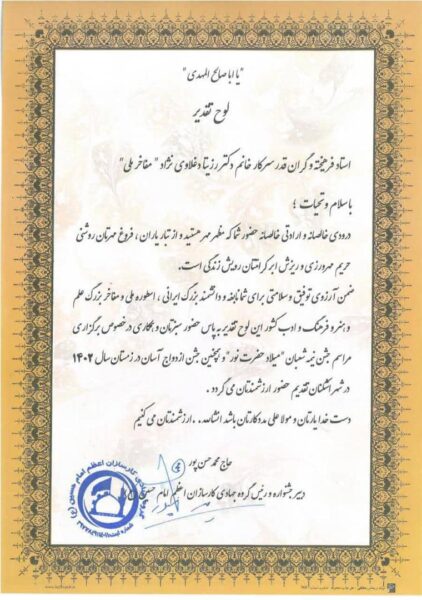 "یا ابا صالح المهدی"
لوح تقدیر
استاد فرهیخته و گران قدر سرکار خانم دکتر رزیتا دغلاوی نژاد "مفاخر ملی"
با سلام و تحیات ؛
درودی خالصانه و ارادتی خالصانه حضور شما که مظهر مهر هستید و از تبار یاران ، فروغ مهرتان روشنی
حریم مهرورزی و ریزش ابر کرامتان رویش زندگی است.
ضمن آرزوی توفیق و سلامتی برای شما نابغه و دانشمند بزرگ ایرانی ، اسطوره ملی و مفاخر بزرگ علم
و هنر و فرهنگ و ادب کشور این لوح تقدیر به پاس حضور سبزتان و همکاری در خصوص برگزاری
مراسم جشن نیمه شعبان "میلاد حضرت نور" و همچنین جشن ازدواج آسان در زمستان سال ۱۴۰۲
در شهر اشکنان تقدیم حضور ارزشمندتان می گردد .
دست خدا یارتان و مولا علی مددکارتان باشد انشاالله . . . ارزشمندتان می کنیم
حاج محمد حسن پور
دبیر جشنواره و رئیس گروه جهادی کارسازان اعظم امام حسین
گروه جهادی کارسازان اعظم امام حسین (ع)